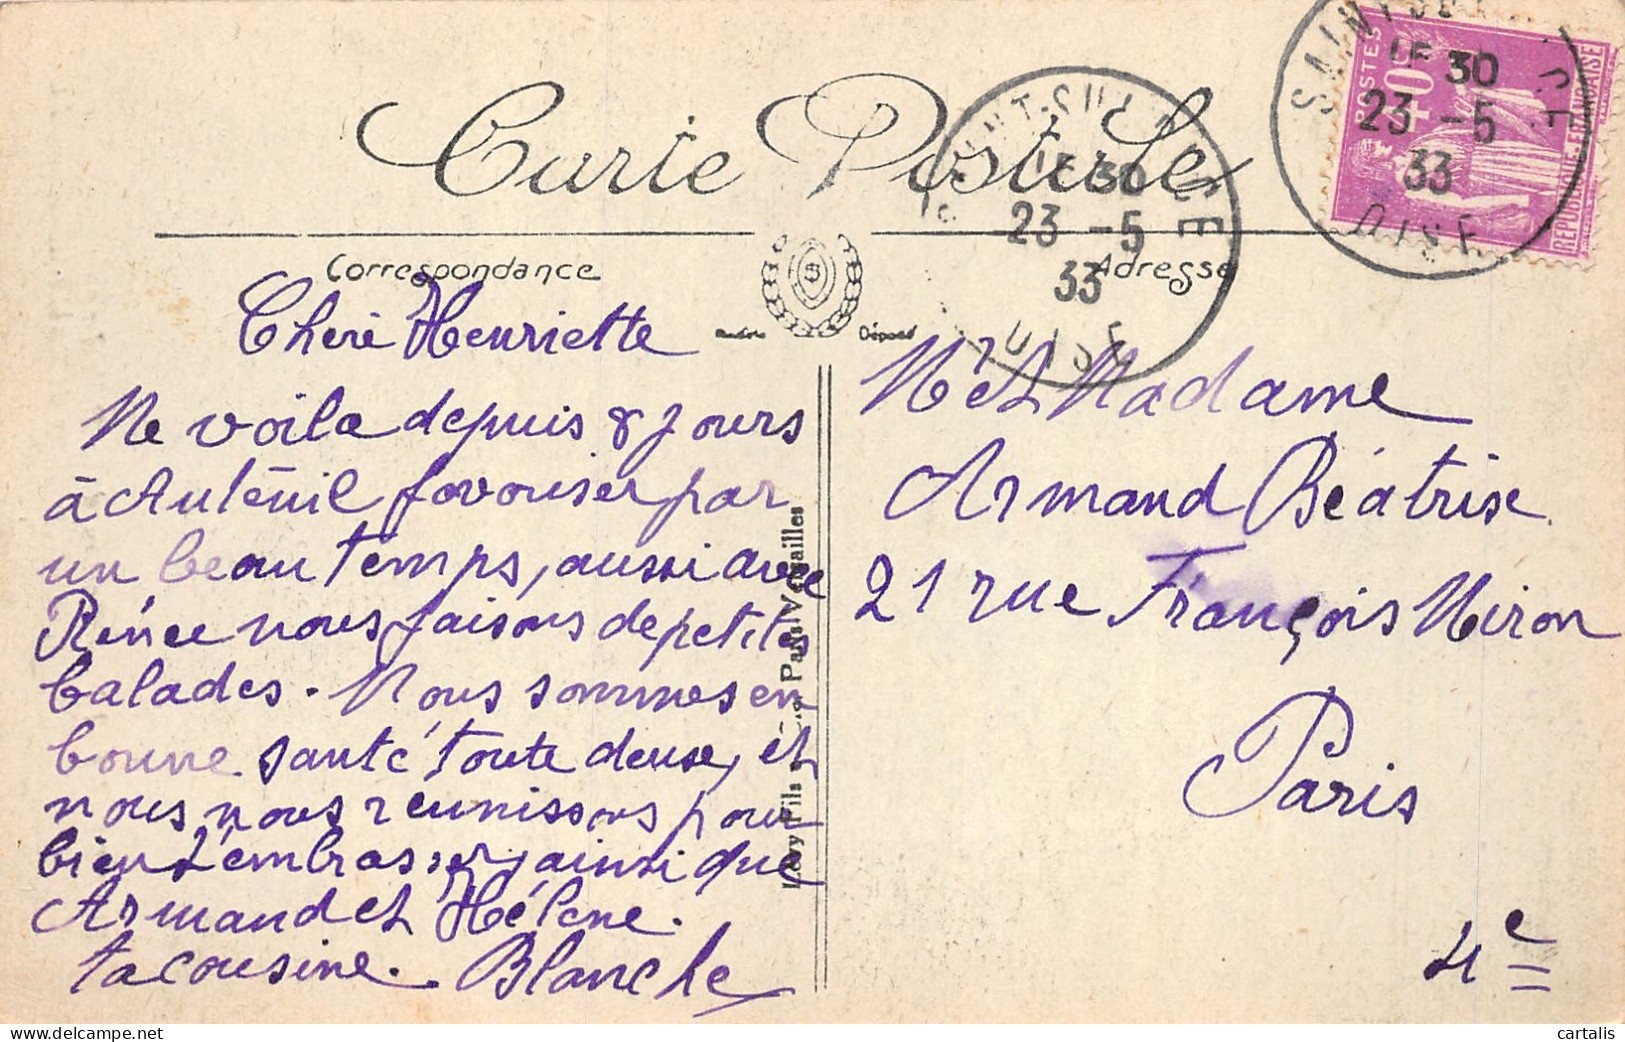 Carte Postale
Correspondance
Adresse
Modèle Déposé
SAINT-SULPICE
15 30
23 -5
33
OISE
15 30
23 -5
33
OISE
POSTES
40c
REPUBLIQUE-FRANÇAISE
Cheré Henriette
Me voila depuis 8 jours
à Auteuil favoriser par
un beau temps, aussi avec
Rénée nous faisons de petites
balades. Nous sommes en
bonne santé toute deuse, et
nous nous reunissons pour
bien t'embrasser, ainsi que
Armand et Hélène.
ta cousine. Blanche
Lévy Fils & Cie, Paris-Versailles
Mr et Madame
Armand Béatrise
21 rue François Miron
Paris
4e
cartalis